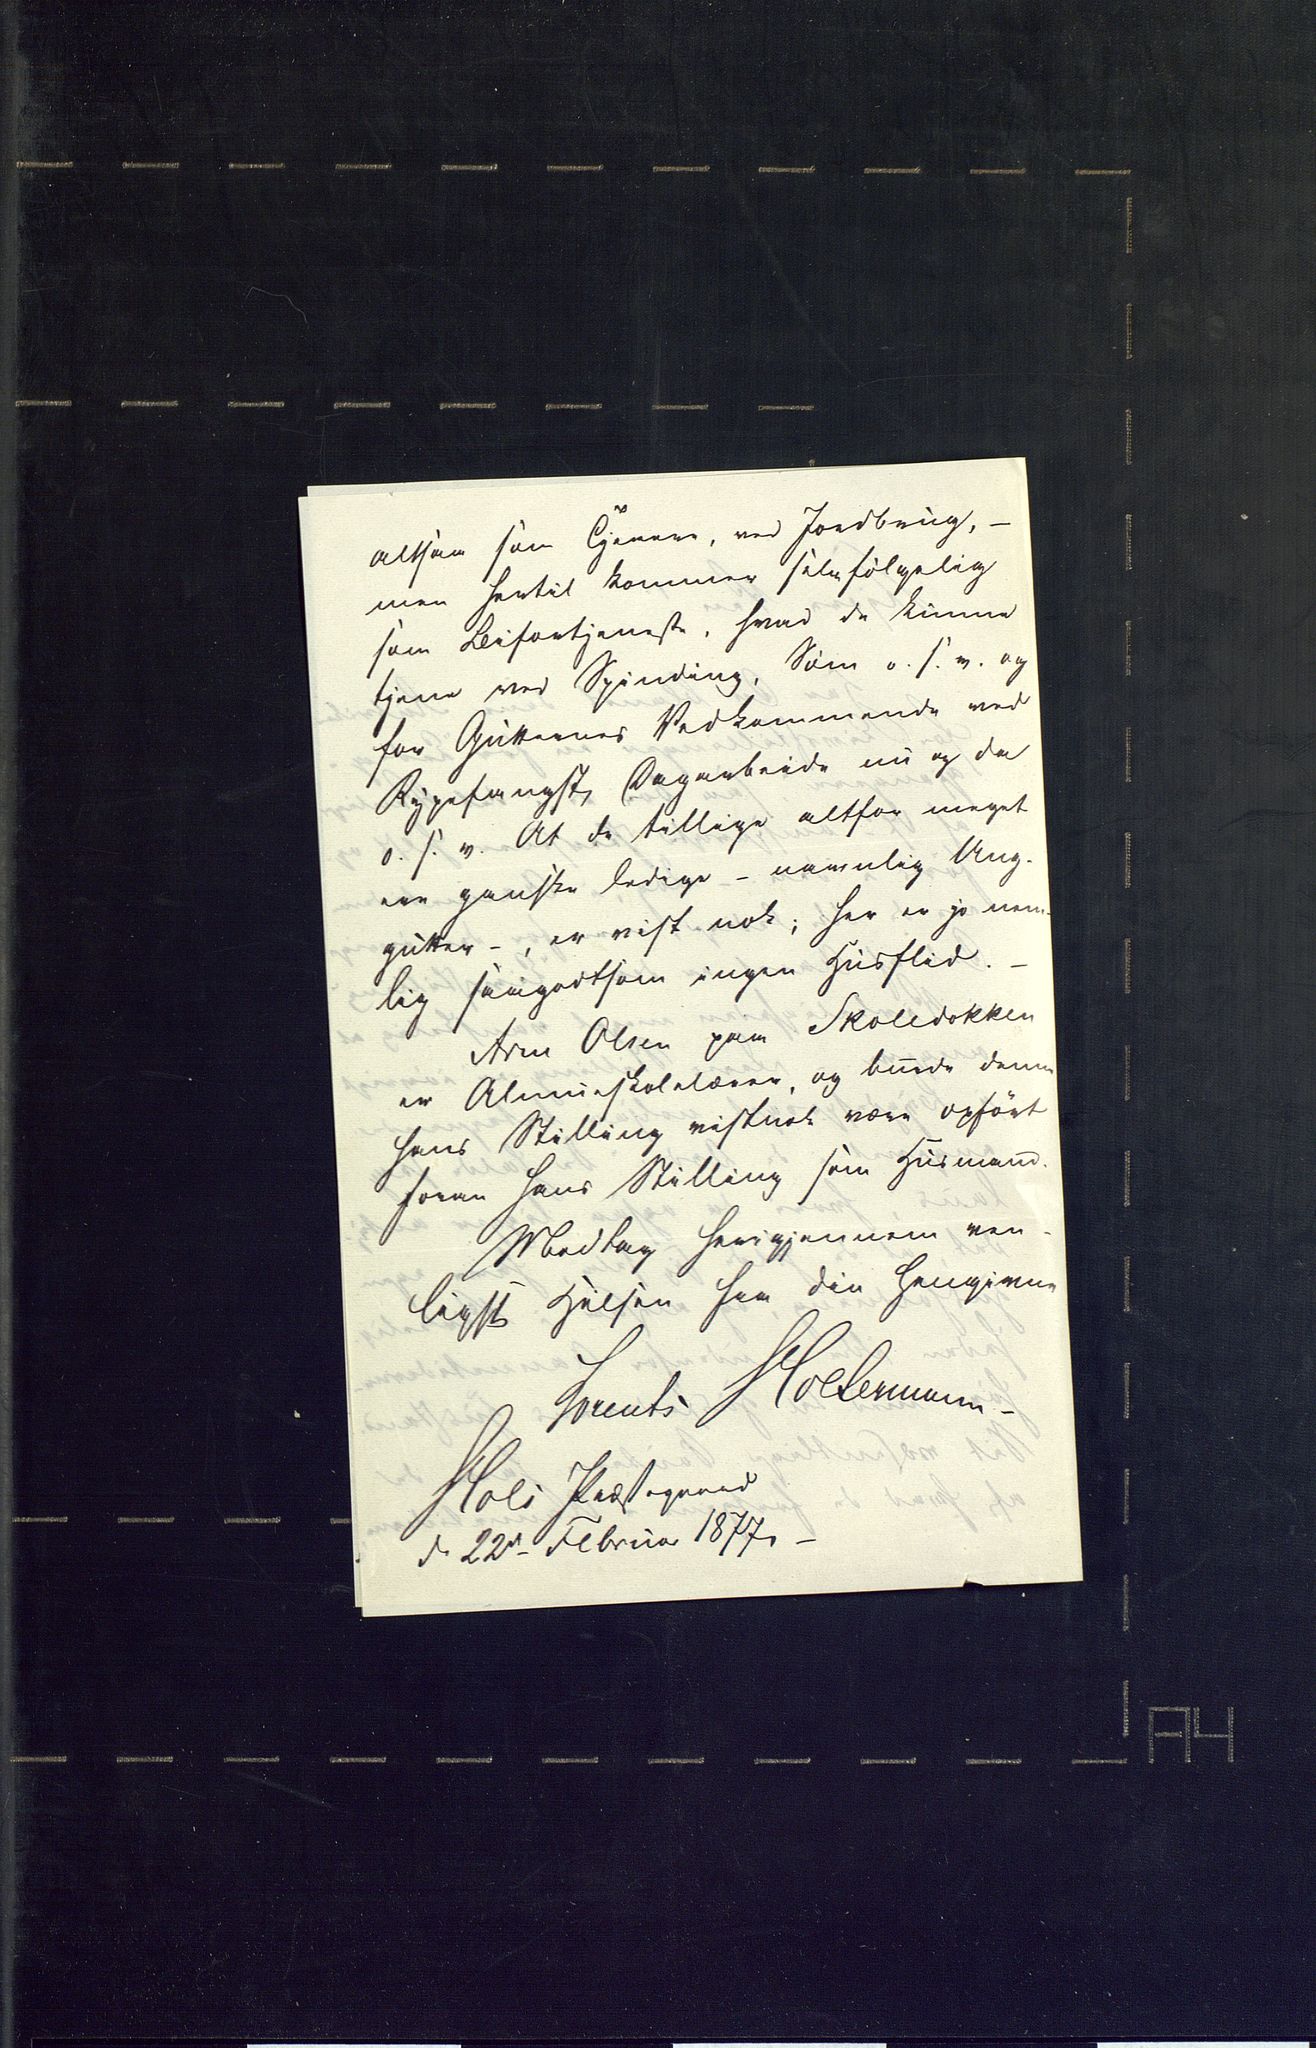 altsaa som Tjenere, ved Jordbrug, –
men hertil kommer selvfølgelig
som Bifortjeneste, hvad de kunne
tjene ved Spinding, Søm o. s. v. og
for Gutternes Vedkommende ved
Rypefangst, Dagarbeide nu og da
o. s. v. At de tillige altfor meget
ere ganske ledige – navnlig Ung-
gutter –, er vist nok; her er jo nem-
lig saagodtsom ingen Husflid. –
Arne Olsen paa Skoledokken
er Almueskolelærer, og burde denne
hans Stilling vistnok være opført
foran hans Stilling som Husmand.
Modtag herigjennem ven-
ligst Hilsen fra din hengivne
Lorents Holtermann –
Hols Præstegaard
d. 22de Februar 1877. –
A4